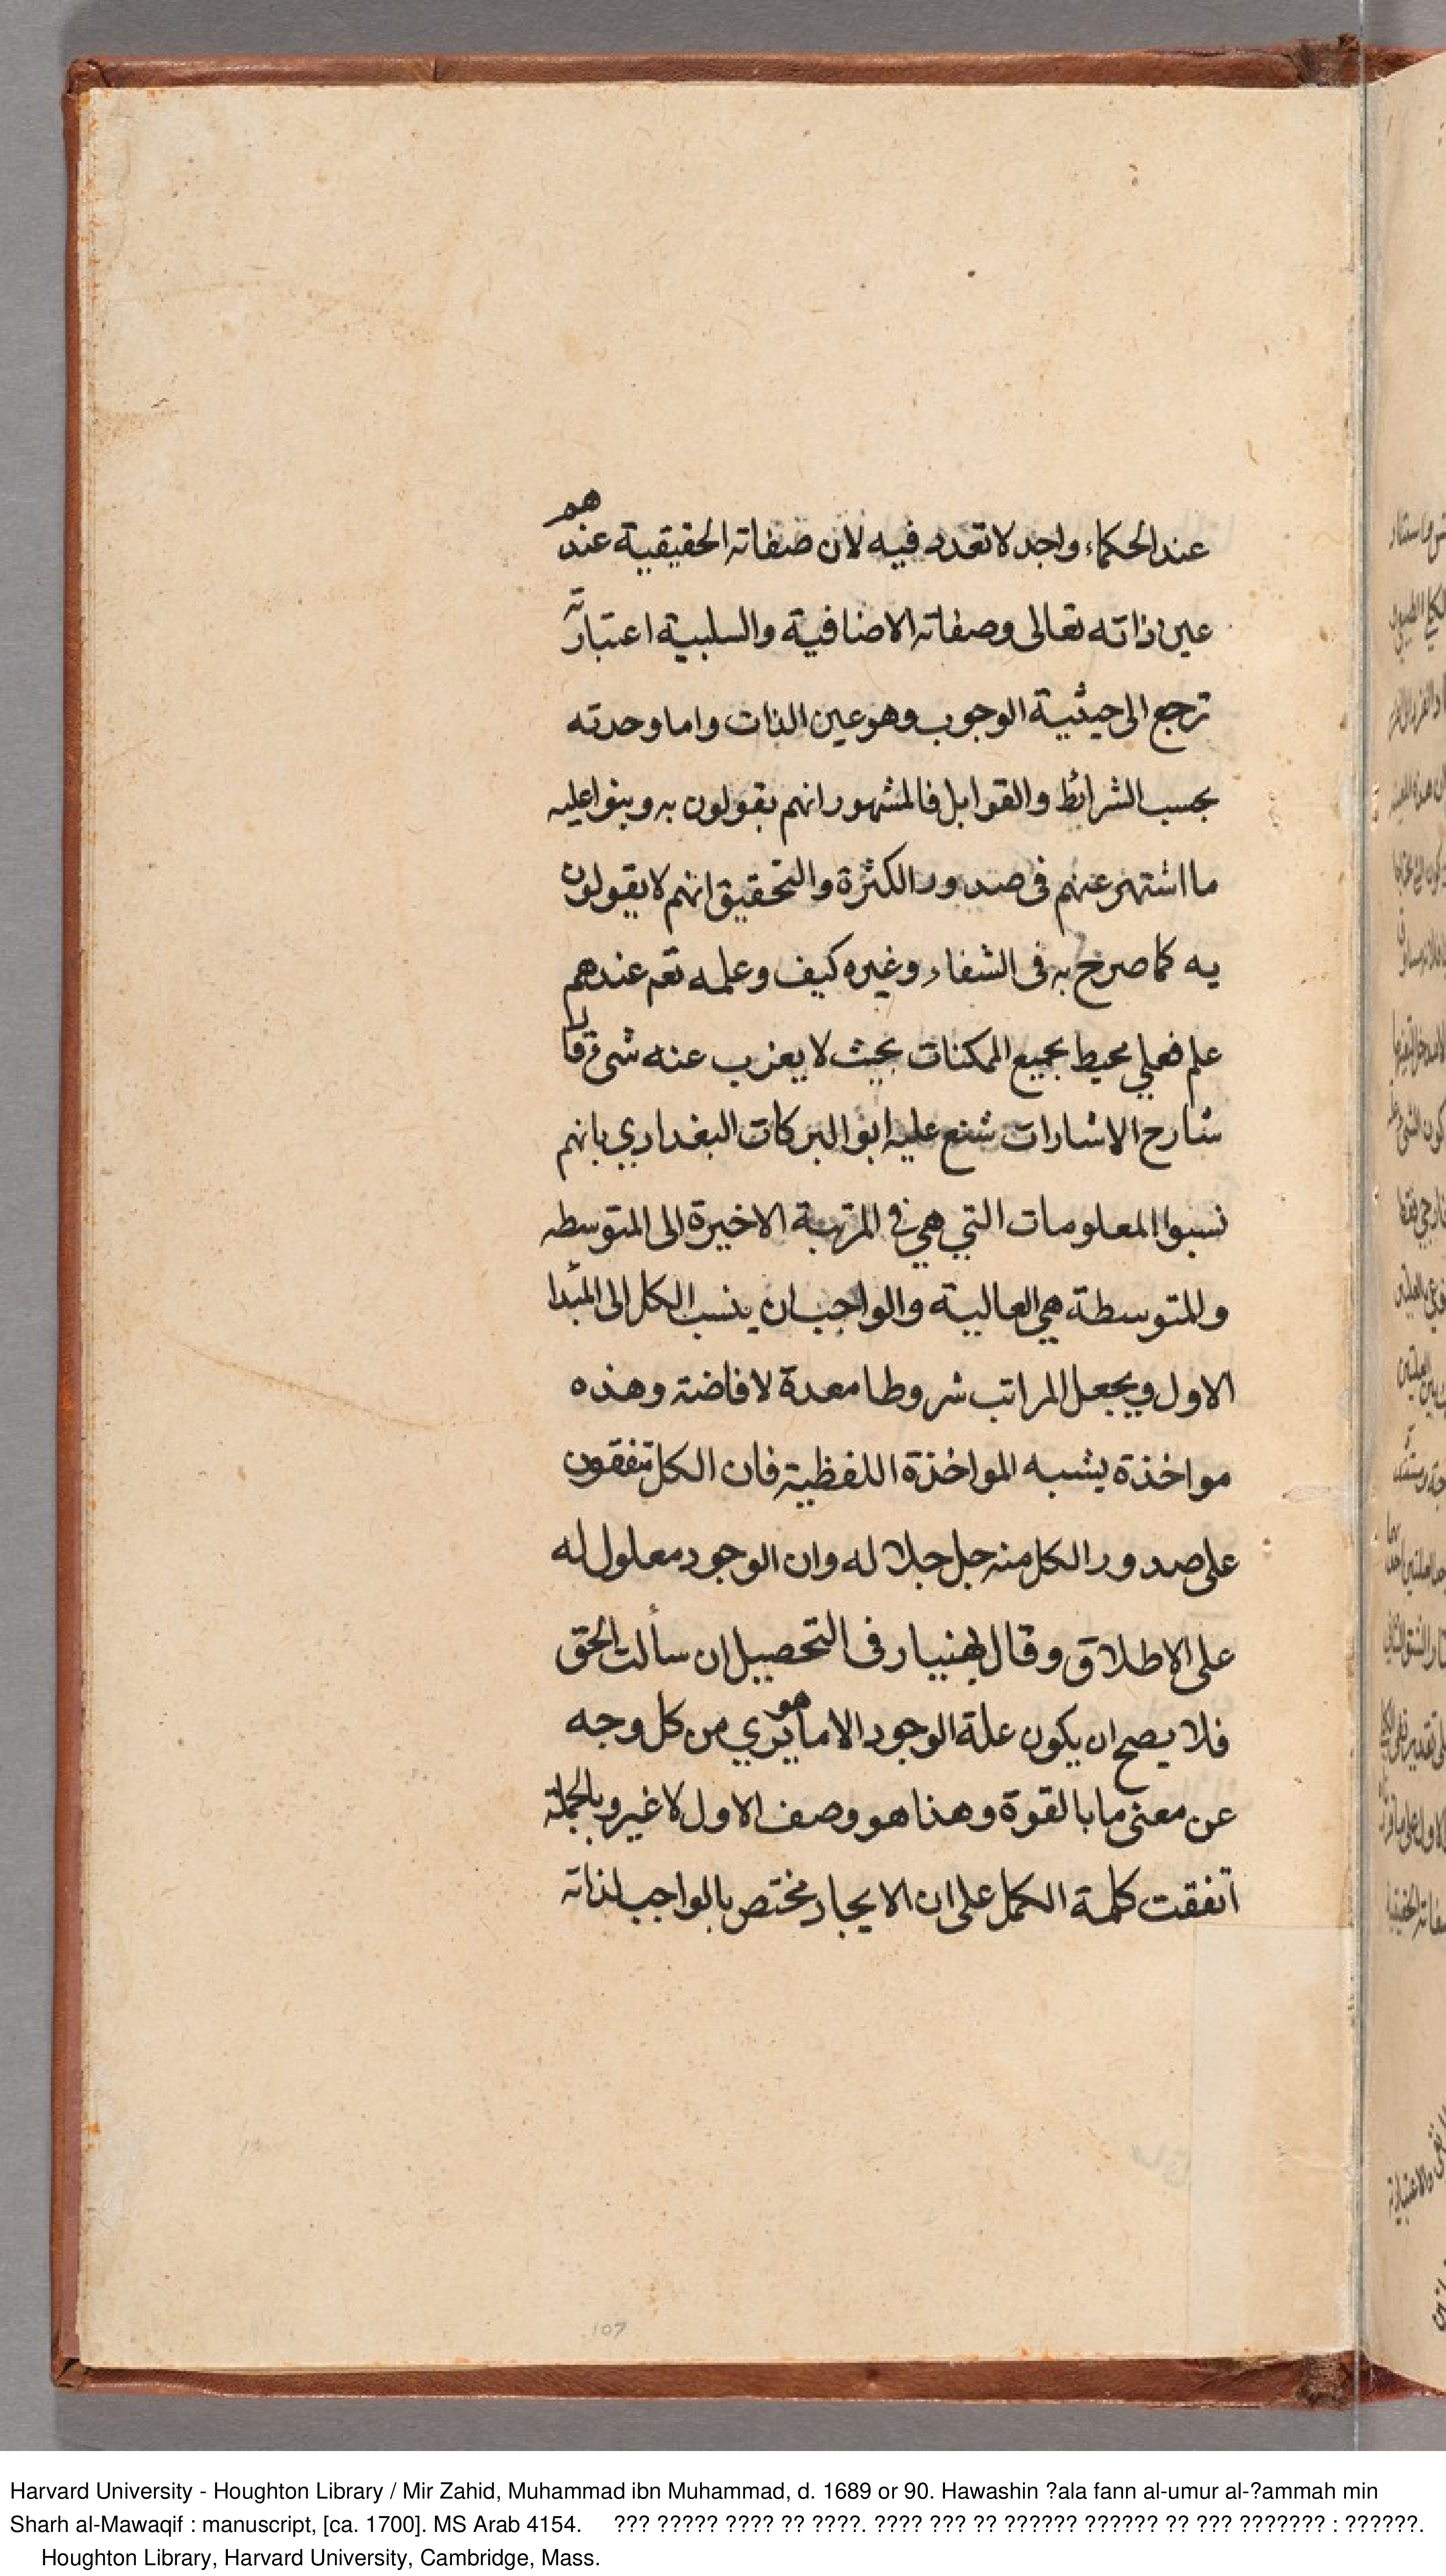 عند الحكماء واحد لا تعدد فيه لان صفاته الحقيقية عندهم
عين ذاته تعالى وصفاته الاضافية والسلبية اعتباراته
ترجع الى حيثية الوجوب وهو عين الذات واما وحدته
بحسب الشرائط والقوابل فالمشهور انهم يقولون به وبنوا عليه
ما اشتهر عنهم فى صدور الكثرة والتحقيق انهم لا يقولون
به كما صرح به فى الشفاء وغيره كيف وعلمه تعم عندهم
علم فعلي محيط بجميع الممكنات بحيث لا يعزب عنه شىء قال
شارح الاشارات شنع عليه ابو البركات البغدادي بانهم
نسبوا المعلومات التي هي في المرتبة الاخيرة الى المتوسطه
والمتوسطة هي العالية والواجب ان ينسب الكل الى المبدا
الاول ويجعل المراتب شروطا معدة لافاضته وهذه
مواخذة يشبه المواخذة اللفظية فان الكل متفقون
على صدور الكل منه جل جلاله وان الوجود معلول له
على الاطلاق وقال بهمنيار فى التحصيل ان سألت الحق
فلا يصح ان يكون علة الوجود الا ما هو بري من كل وجه
عن معنى ما بالقوة وهذا هو وصف الاول لا غير وبالجملة
اتفقت كلمة الكمل على ان الايجاد مختص بالواجب لذاته
107
Harvard University - Houghton Library / Mir Zahid, Muhammad ibn Muhammad, d. 1689 or 90. Hawashin ?ala fann al-umur al-?ammah min
Sharh al-Mawaqif : manuscript, [ca. 1700]. MS Arab 4154. ??? ????? ???? ?? ????. ???? ??? ?? ?????? ?????? ?? ??? ??????? : ??????.
Houghton Library, Harvard University, Cambridge, Mass.